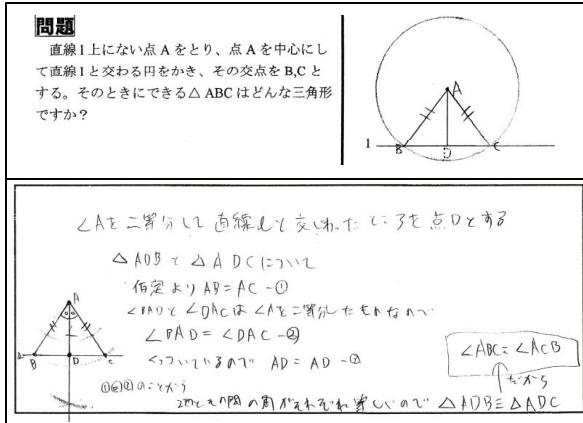 問題
直線l上にない点Aをとり、点Aを中心にし
て直線lと交わる円をかき、その交点をB,Cと
する。そのときにできる△ABCはどんな三角形
ですか？
A
l
B
D
C
∠Aを二等分して直線lと交わったところを点Dとする
△ADBと△ADCについて
仮定よりAB=AC-①
∠BADと∠DACは∠Aを二等分したものなので
∠BAD=∠DAC-②
くっついているのでAD=AD-③
①②③のことから
2辺とその間の角がそれぞれ等しいので△ADB≡△ADC
だから
∠ABC=∠ACB
A
l
B
D
C